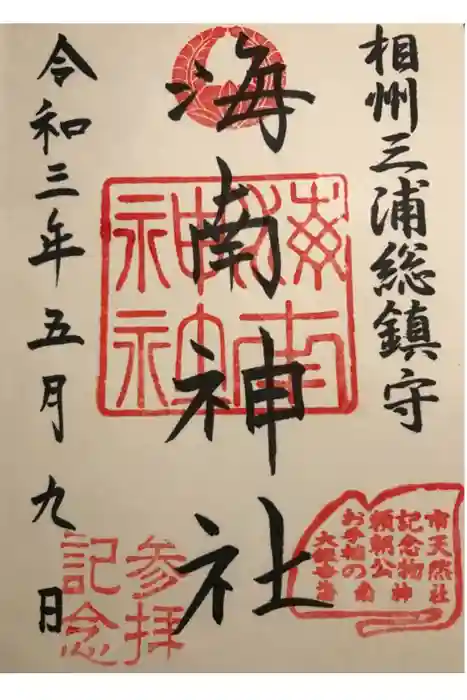 相州三浦総鎮守
海南神社
海南
神社
令和三年五月九日
参拝
記念
市天然
記念物
頼朝公
お手植の
大銀杏
海南神社